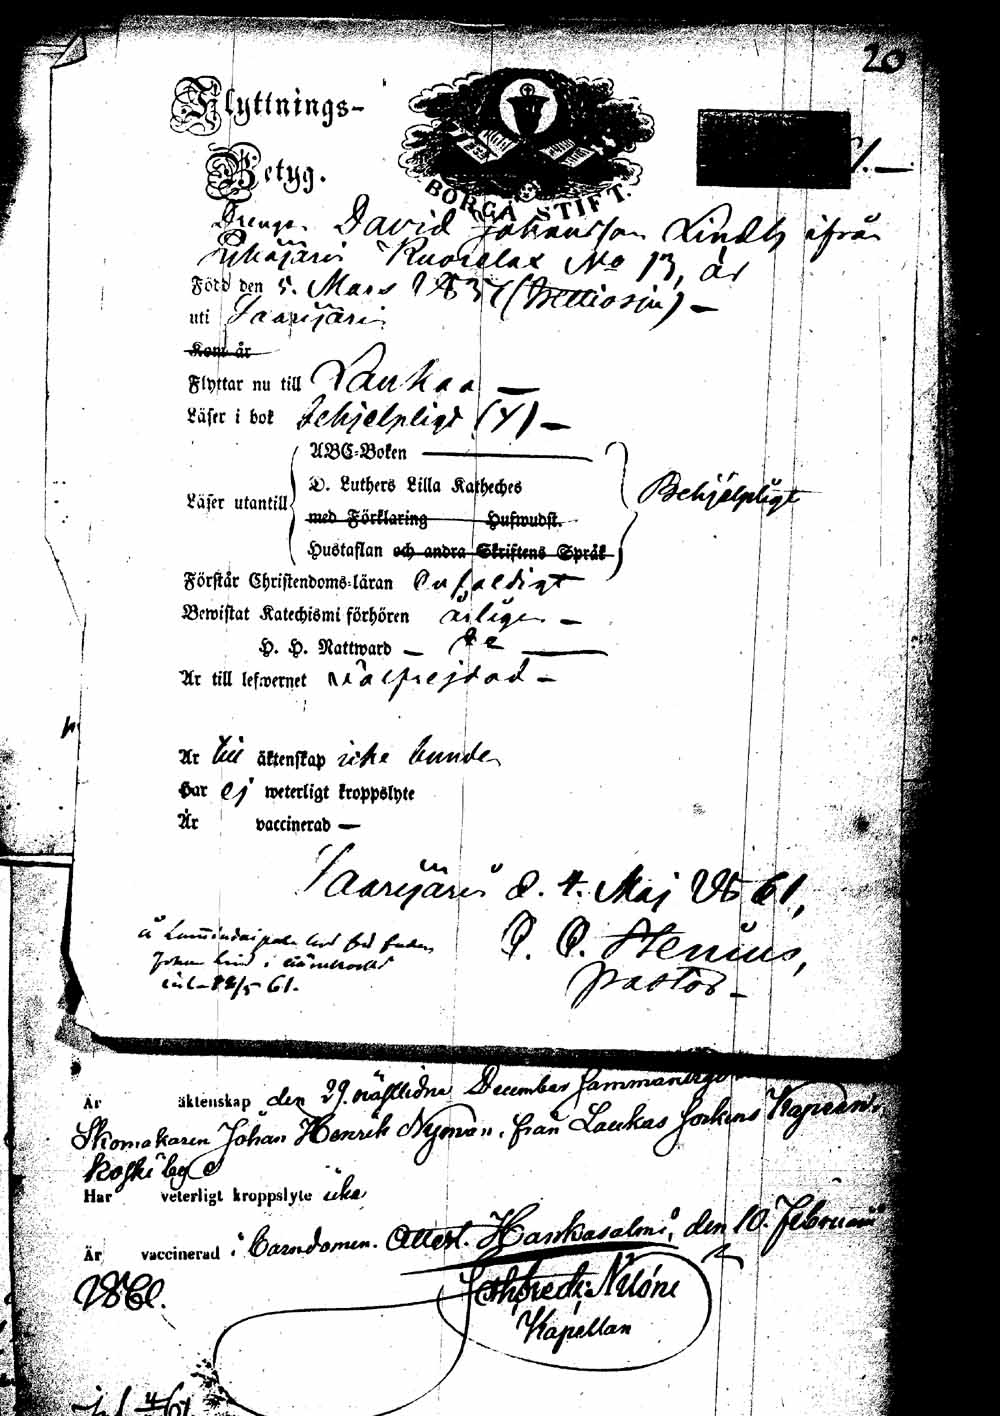 20
Flyttnings-
Betyg.
BORGÅ STIFT.
1.—
Drengen David Johansson Lindh ifrån
Pyhäjärvi Kuorelax No 13, är
Född den 5. Mars 1837 (trettiosju) —
uti Saarijärvi
Kom år
Flyttar nu till Laukaa —
Läser i bok behjelpligt (4) —
ABC-Boken —
Läser utantill
D. Luthers Lilla Katheches
med Förklaring Hufwudst.
Hustaflan och andra Skriftens Språk
Behjelpligt
Förstår Christendoms-läran enfaldigt
Bewistat Katechismi förhören årligen —
H. H. Nattward — de —
Är till lefwernet välfrejdad —
Är till äktenskap icke bunden
Har ej weterligt kroppslyte
Är vaccinerad —
Saarijärvi d. 4. Maj 1861,
O. O. Stenius,
pastor —
å
Johan Lind i
22/5 61.
Är äktenskap den 29. näftlidne December sammanvigd
Skomakaren Johan Henrik Nyman, från Laukas Sockens Kapeen-
koski by
Har veterligt kroppslyte icke
Är vaccinerad i barndomen. Attest. Hankasalmi, den 10. Februari
1861.
Kapellan
4/61